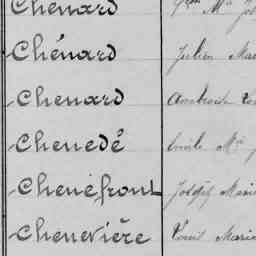 Chenard
Chénard Julien
Chenard Ambroise
Chenedé Emile Mie
Chenefront Joseph Marie
Chenevière Louis Marie